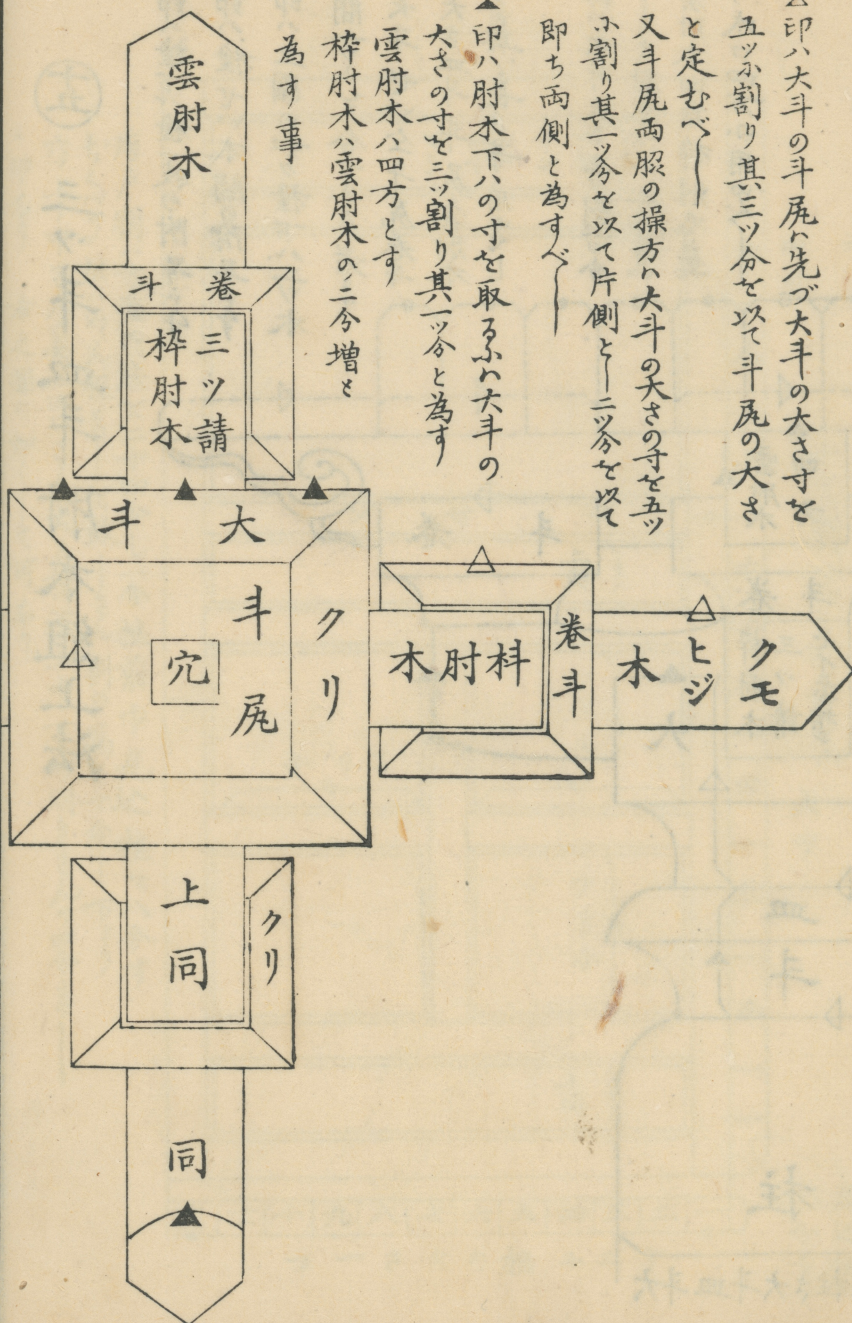 △印ハ大斗の斗尻ハ先づ大斗の大さ寸を
五ッニ割り其三ツ分を以て斗尻の大さ
と定むべし
又斗尻両脇の操方ハ大斗の大さの寸を五ッ
ニ割り其一ッ分を以て片側とし二ッ分を以て
即ち両側と為すべし
▲印ハ肘木下ハの寸を取るにハ大斗の
大さの寸を三ッ割り其一ッ分と為す
雲肘木ハ四方とす
枠肘木ハ雲肘木の二分増と
為す事
雲肘木
巻斗
三ツ請
枠肘木
大斗
クリ
斗尻
穴
枓肘木
巻斗
クモ
ヒジ
木
上同
クリ
同